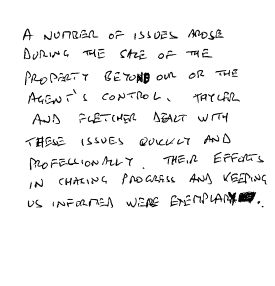 A NUMBER OF ISSUES AROSE
DURING THE SALE OF THE
PROPERTY BEYOND OUR OR THE
AGENT'S CONTROL. TAYLER
AND FLETCHER DEALT WITH
THESE ISSUES QUICKLY AND
PROFESSIONALLY. THEIR EFFORTS
IN CHASING PROGRESS AND KEEPING
US INFORMED WERE EXEMPLARY.